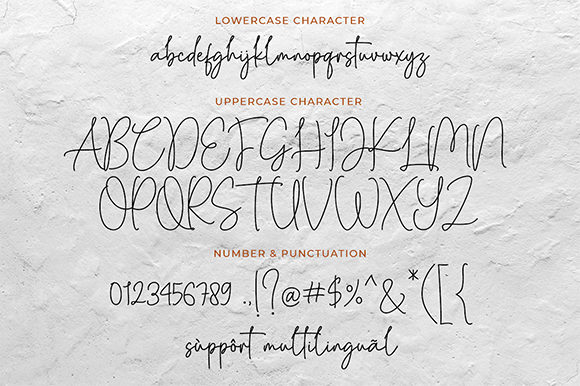 LOWERCASE CHARACTER
abcdefghijklmnopqrstuvwxyz
UPPERCASE CHARACTER
ABCDEFGHIJKLMN
OPQRSTUVWXYZ
NUMBER & PUNCTUATION
0123456789 .,!?@#$%^&*([{
sùppôrt multilinguãl